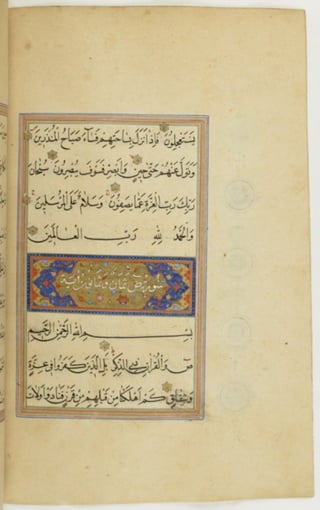 يَسْتَعْجِلُونَ فَإِذَا نَزَلَ بِسَاحَتِهِمْ فَسَآءَ صَبَاحُ الْمُنْذَرِينَ
وَتَوَلَّ عَنْهُمْ حَتَّى حِينٍ وَأَبْصِرْ فَسَوْفَ يُبْصِرُونَ سُبْحَانَ
رَبِّكَ رَبِّ الْعِزَّةِ عَمَّا يَصِفُونَ وَسَلَامٌ عَلَى الْمُرْسَلِينَ
وَالْحَمْدُ لِلَّهِ رَبِّ الْعَالَمِينَ
سورة ص ثمان وثمانون آية
بِسْمِ اللهِ الرَّحْمٰنِ الرَّحِيمِ
صٓ وَالْقُرْآنِ ذِي الذِّكْرِ بَلِ الَّذِينَ كَفَرُوا فِي عِزَّةٍ
وَشِقَاقٍ كَمْ أَهْلَكْنَا مِنْ قَبْلِهِمْ مِنْ قَرْنٍ فَنَادَوْا وَلَاتَ